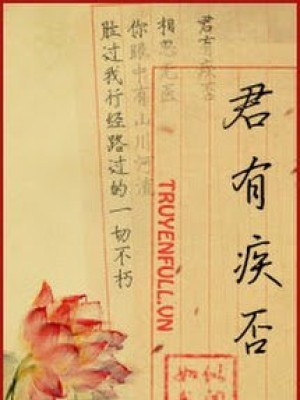 君有疾否
君有疾否
相思无医
你眼中有山川河流
胜过我行经路过的一切不朽
TRUYENFULL.VN